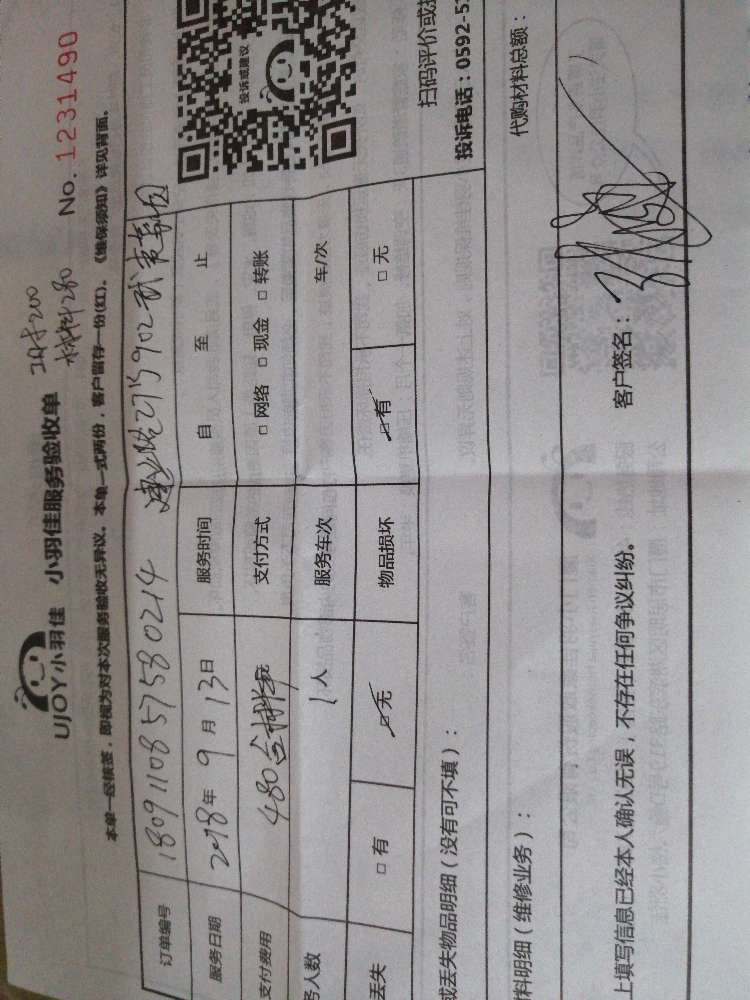 UJOY小羽佳 小羽佳服务验收单
200
材料280
No. 1231490
本单一经核签，即视为对本次服务验收无异议。本单一式两份，客户留存一份(红)。《维保须知》详见背面。
订单编号 180911085757580214
服务日期 2018年 9月 13日 服务时间 自 至 止
支付费用 480含材料 支付方式 □ 网络 □ 现金 □ 转账
务人数 1人 服务车次 车/次
丢失 □ 有 □ 无 物品损坏 □ 有 □ 无
投诉或建议
扫码评价或
投诉电话：0592-5
或丢失物品明细（没有可不填）：
料明细（维修业务）： 代购材料总额：
上填写信息已经本人确认无误，不存在任何争议纠纷。 客户签名：